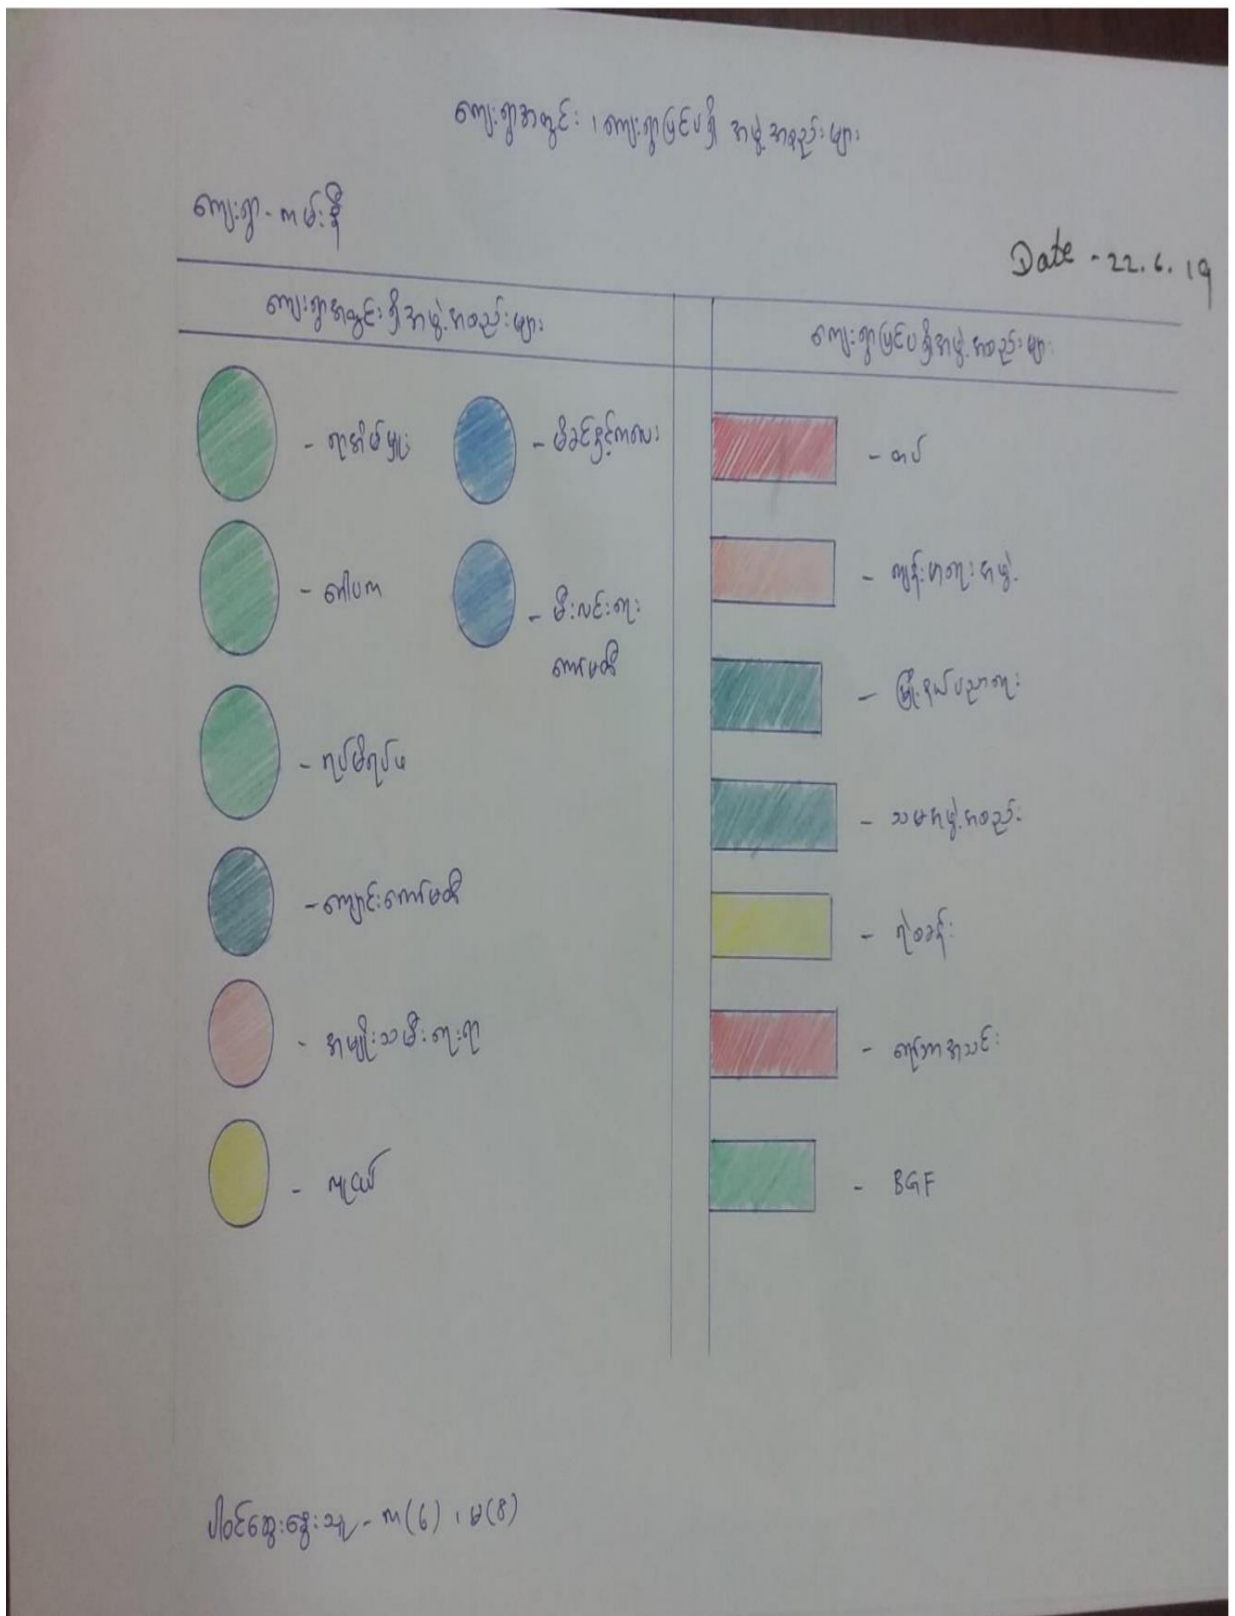 ကျေးရွာအတွင်း ၊ ကျေးရွာပြင်ပရှိ အဖွဲ့အစည်းများ
ကျေးရွာ - ကမ်းနီ
Date - 22.6.19
ကျေးရွာအတွင်းရှိအဖွဲ့အစည်းများ
ကျေးရွာပြင်ပရှိအဖွဲ့အစည်းများ
- ရာအိမ်မှူး
- ဂေါပက
- ရပ်မိရပ်ဖ
- ကျောင်းကော်မတီ
- အမျိုးသမီးရေးရာ
- လူငယ်
- မိခင်နှင့်ကလေး
- မီးလင်းရေး
ကော်မတီ
- တပ်
- ကျန်းမာရေးအဖွဲ့
- မြို့နယ်ပညာရေး
- သမအဖွဲ့အစည်း
- ရဲစခန်း
- အသင်း
- BGF
ပါဝင်ဆွေးနွေးသူ - ကျ (6) ၊ မ (8)